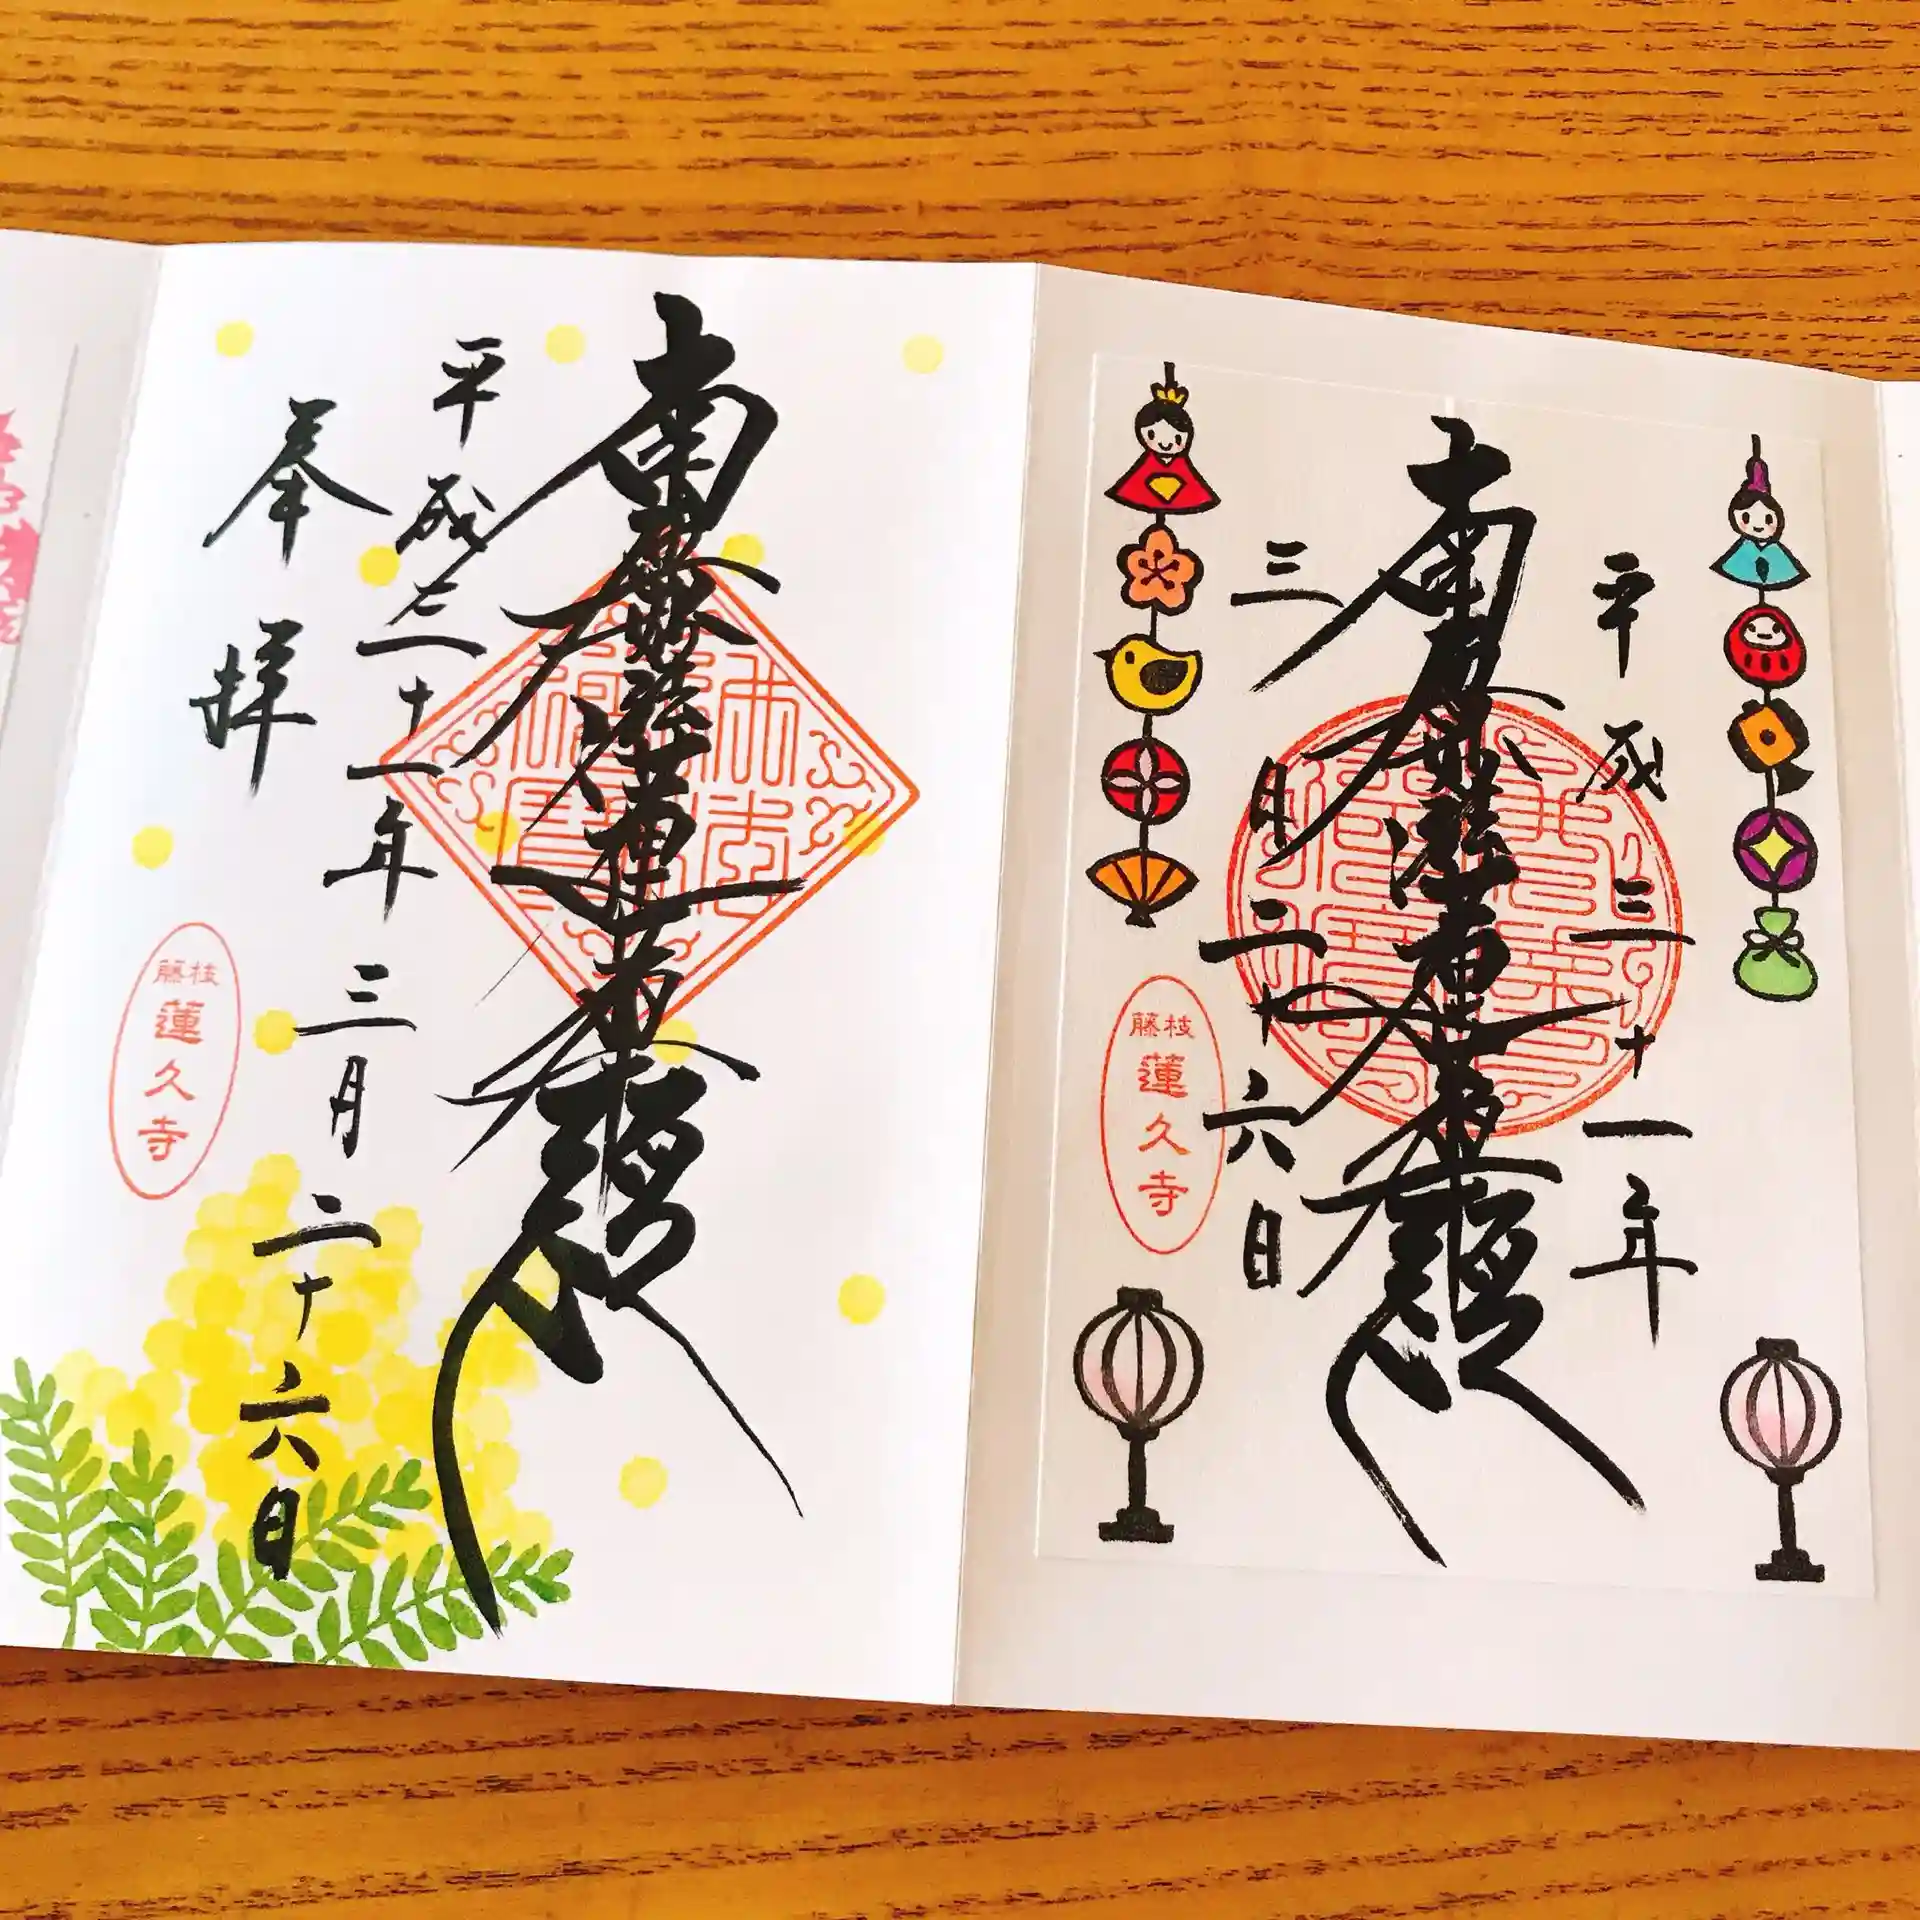 南無妙法蓮華経
平成三十一年三月二十六日
奉拝
藤枝
蓮久寺
平成三十一年
南無妙法蓮華経
三月二十六日
藤枝
蓮久寺